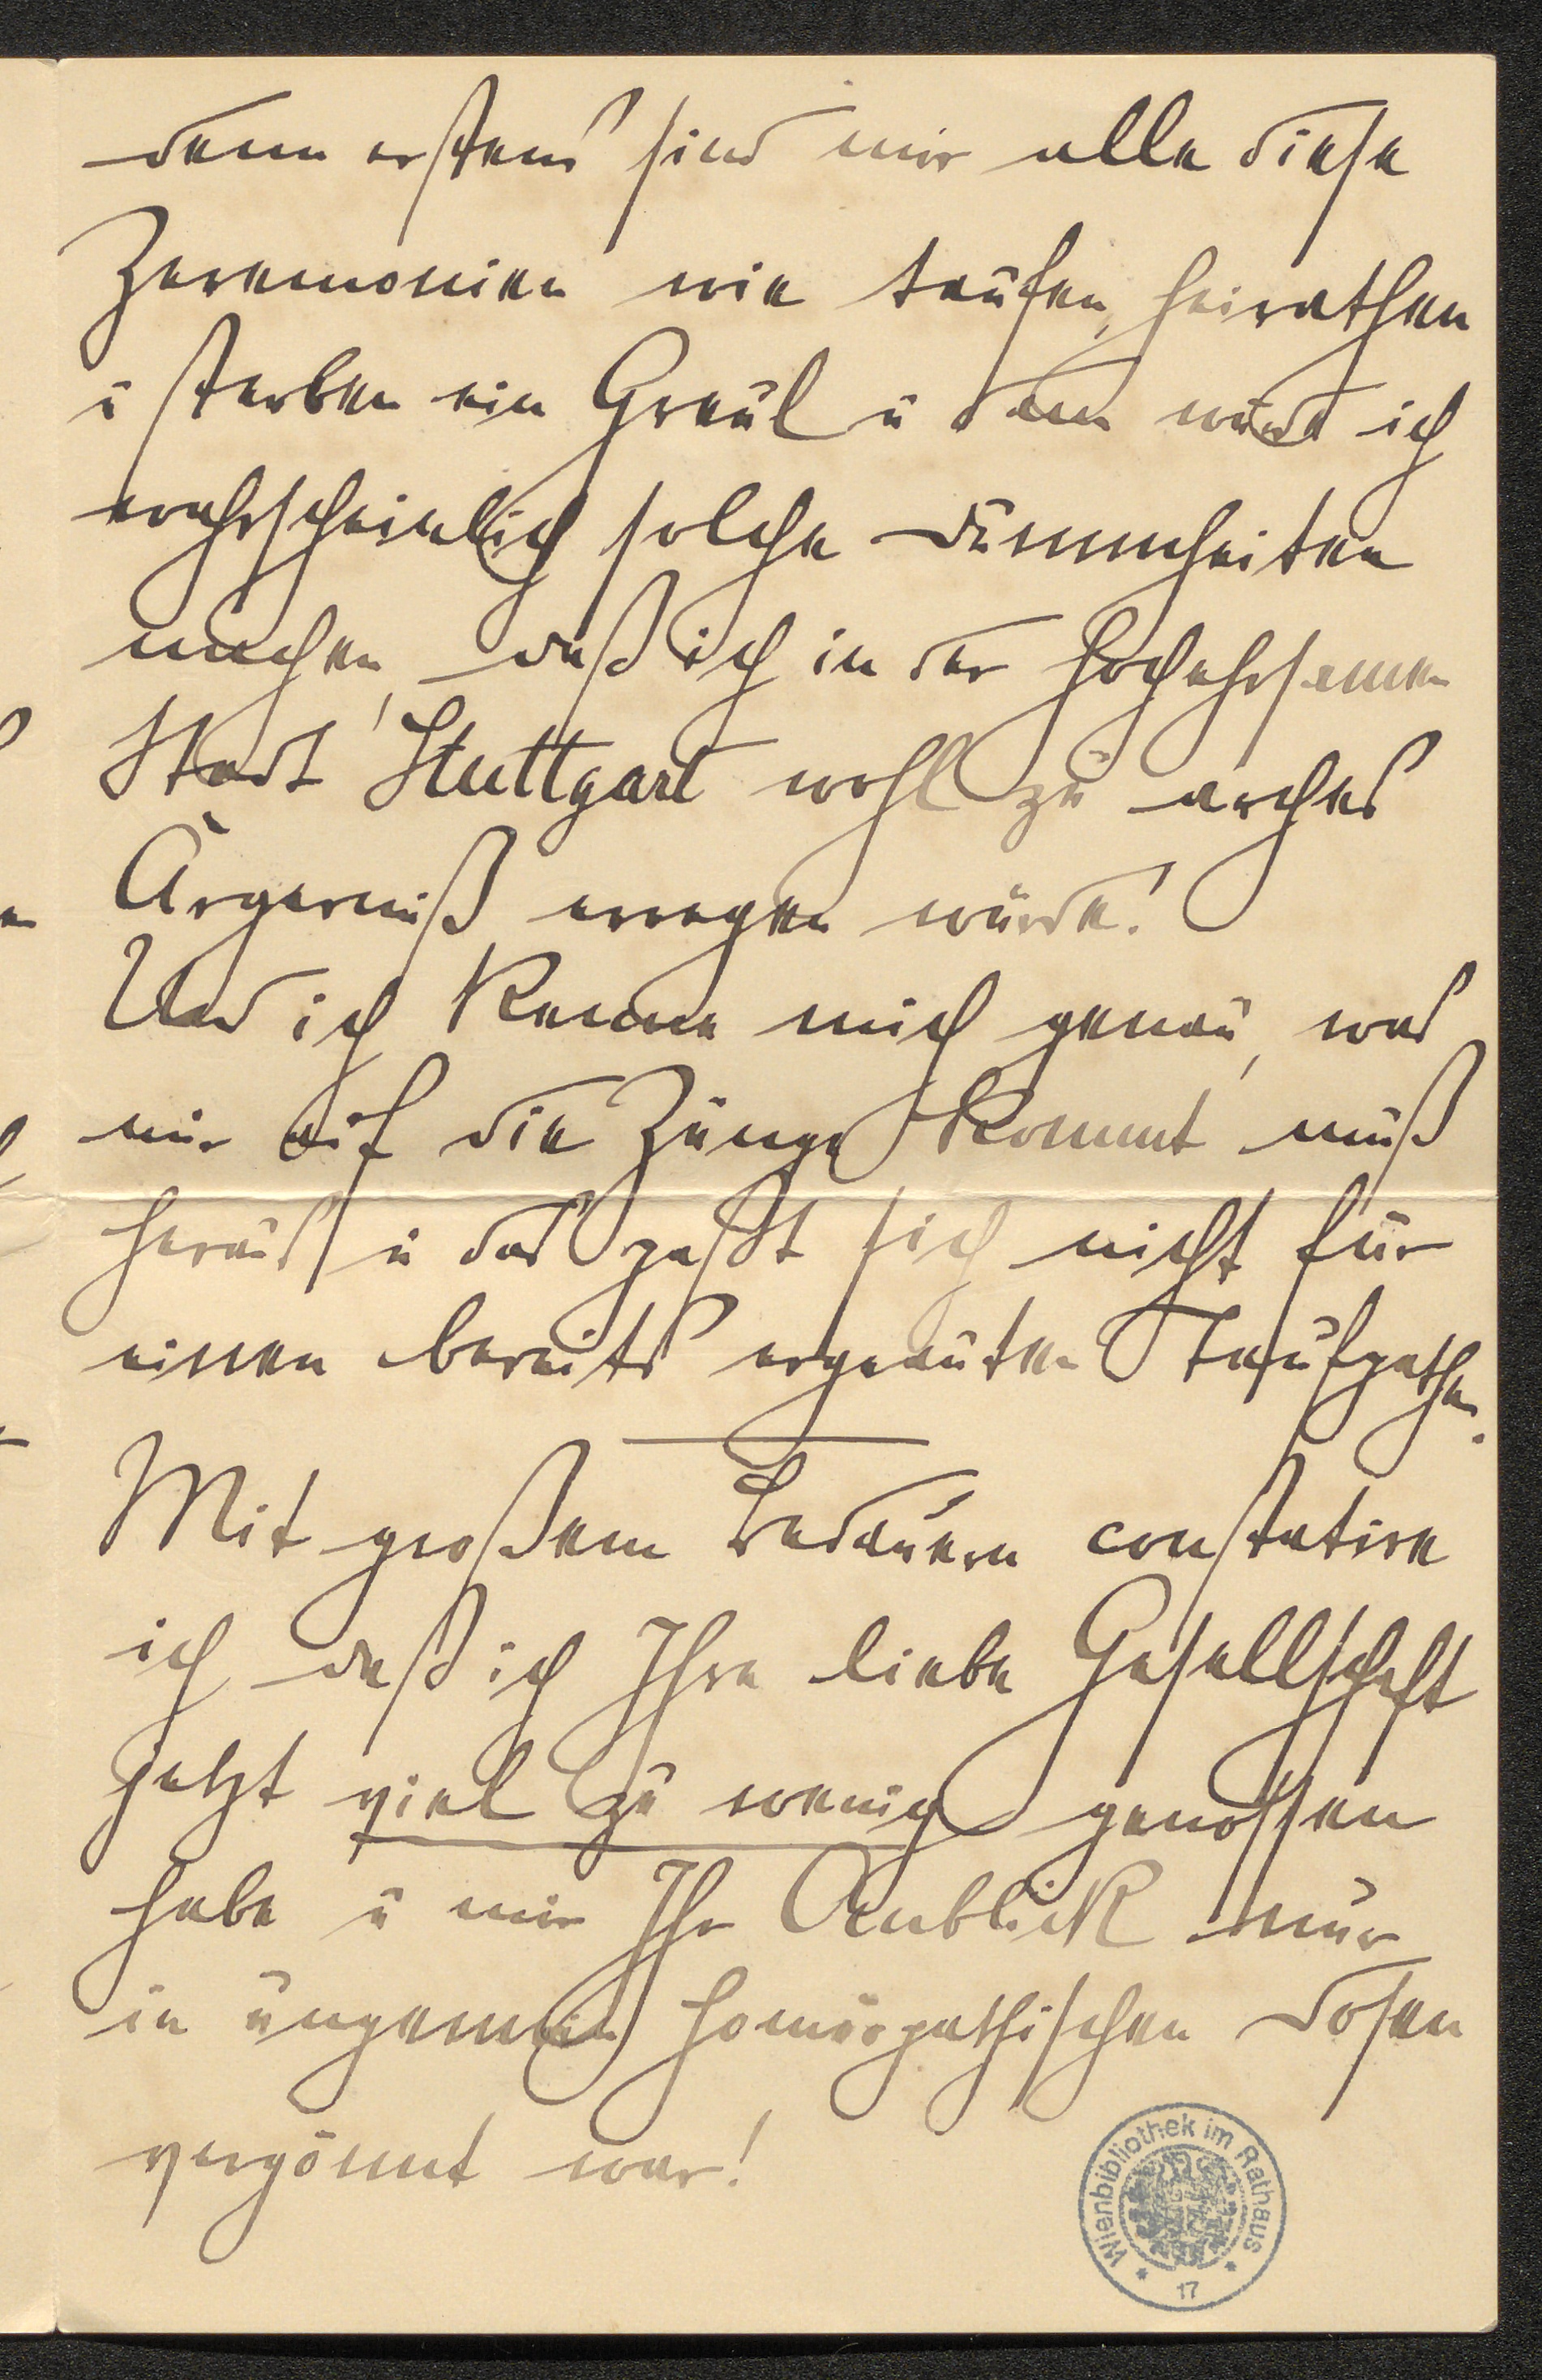 denn erstens sind mir alle diese
Zeremonien wie taufen, heirathen
u sterben ein Greul u dann würd ich
wahrscheinlich solche Dummheiten
machen, daß ich in der hochehrsamen
Stadt Stuttgart wohl zu arches
Ärgerniß erregen würde!
Und ich kenne mich genau, was
mir auf die Zunge kommt muß
heraus u das paßt sich nicht für
einen bereits ergrauten Taufpathen.
Mit großem Bedauern constatire
ich, daß ich Ihre liebe Gesellschaft
jetzt viel zu wenig genossen
habe u mir Ihr Anblick nur
in ungemein homöopathischen Dosen
vergönnt war!
Wienbibliothek im Rathaus
* 17 *